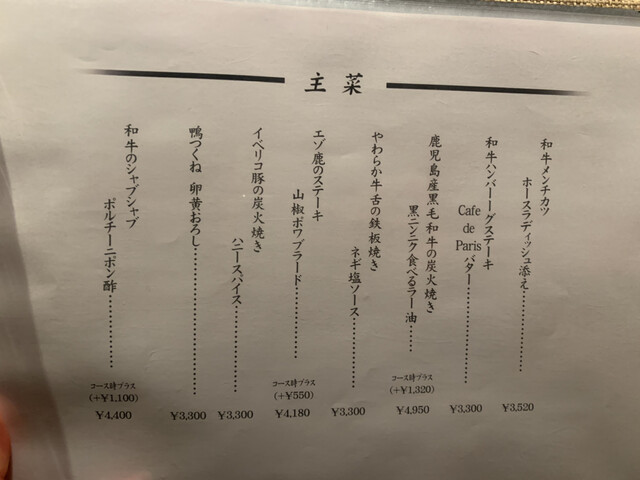 主菜
和牛メンチカツ
ホースラディッシュ添え
¥3,520
和牛ハンバーグステーキ
Cafe de Paris バター
¥3,300
鹿児島産黒毛和牛の炭火焼き
黒ニンニク食べるラー油
コース時プラス
(+¥1,320)
¥4,950
やわらか牛舌の鉄板焼き
ネギ塩ソース
¥3,300
エゾ鹿のステーキ
山椒ポワブラード
コース時プラス
(+¥550)
¥4,180
イベリコ豚の炭火焼き
ハニースパイス
¥3,300
鴨つくね 卵黄おろし
¥3,300
和牛のシャブシャブ
ポルチーニポン酢
コース時プラス
(+¥1,100)
¥4,400